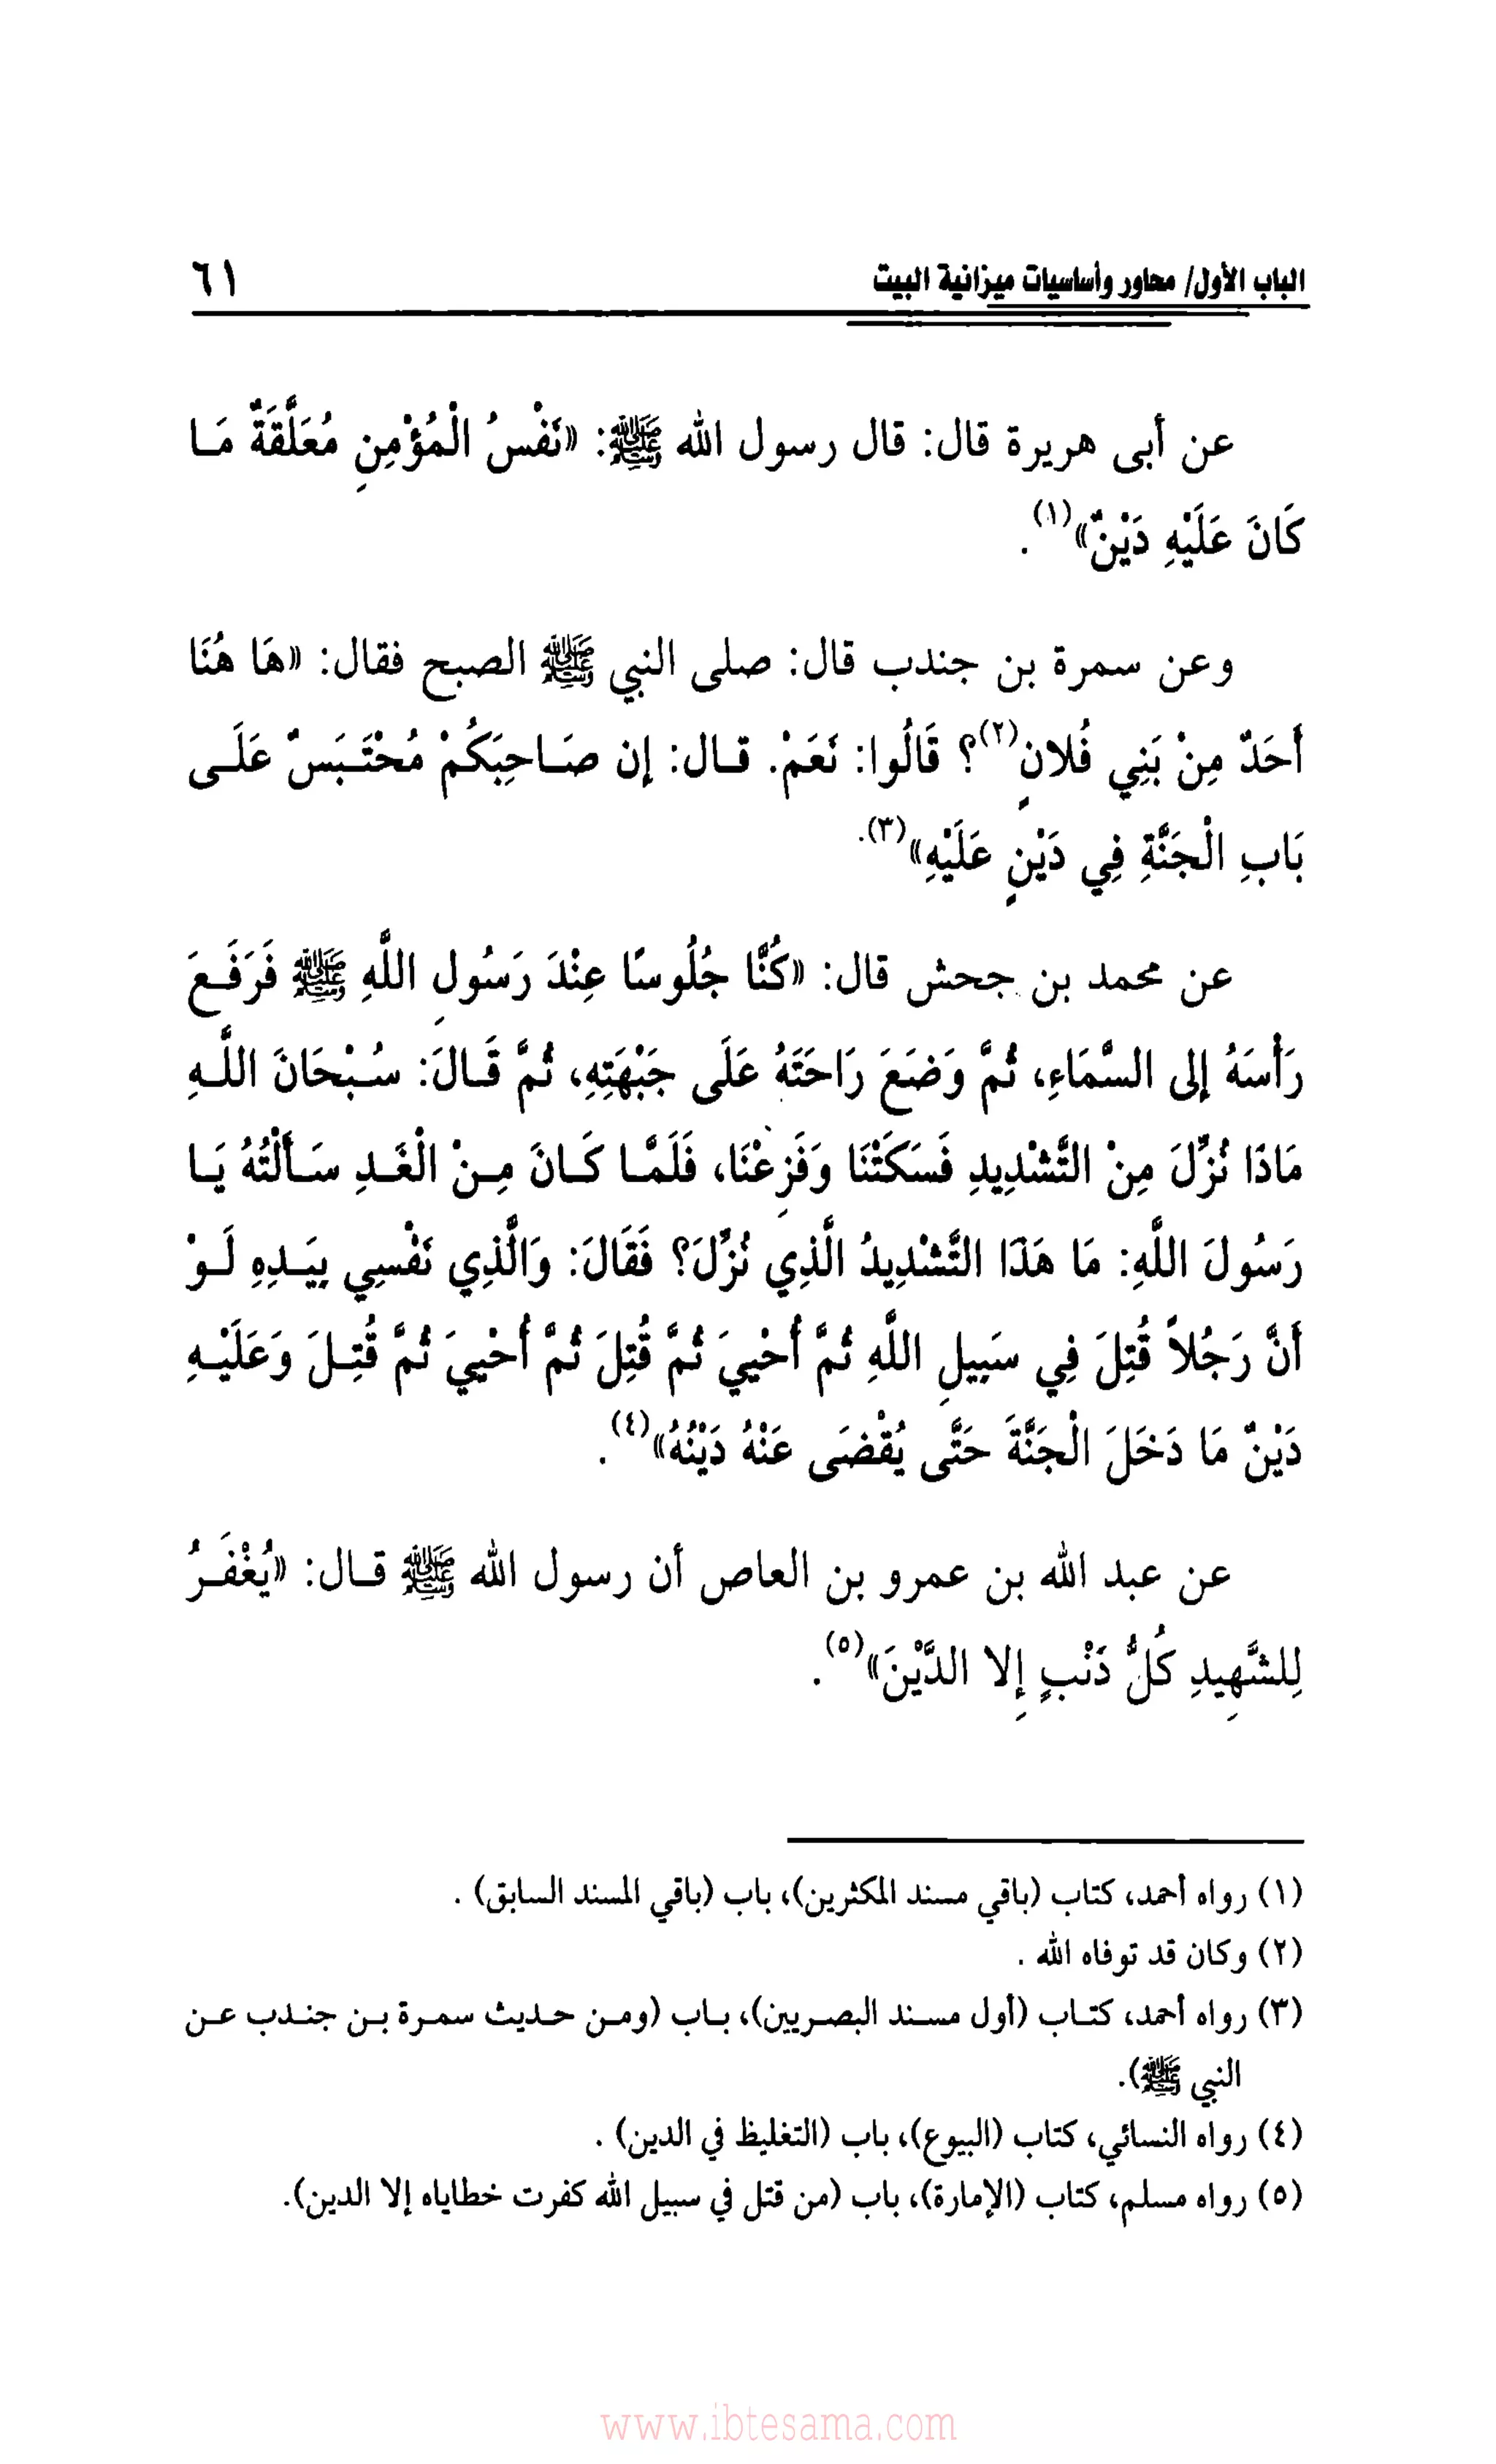 الباب الأول/ محاور وأساسيات ميزانية البيت ٦١
عن أبى هريرة قال: قال رسول الله ﷺ: «نَفْسُ الْمُؤْمِنِ مُعَلَّقَةٌ مَـا
كَانَ عَلَيْهِ دَيْنٌ»(١).
وعن سمرة بن جندب قال: صلى النبي ﷺ الصبح فقال: «هَا هُنَا
أَحَدٌ مِنْ بَنِي فُلانٍ(٢)؟ قَالُوا: نَعَمْ. قـال: إن صَـاحِبَكُمْ مُحْتَـبَسٌ عَلَـى
بَابِ الْجَنَّةِ فِي دَيْنٍ عَلَيْهِ»(٣).
عن محمد بن جحش قال: «كُنَّا جُلُوسًا عِنْدَ رَسُولِ اللَّهِ ﷺ فَرَفَـعَ
رَأْسَهُ إلى السَّمَاءِ، ثُمَّ وَضَعَ رَاحَتَهُ عَلَى جَبْهَتِهِ، ثُمَّ قَـالَ: سُـبْحَانَ اللَّـهِ
مَاذَا نُزِّلَ مِنْ التَّشْدِيدِ فَسَكَتْنَا وَفَزِعْنَا، فَلَمَّـا كَـانَ مِـنْ الْغَـدِ سَـأَلْتُهُ يَـا
رَسُولَ اللَّهِ: مَا هَذَا التَّشْدِيدُ الَّذِي نُزِّلَ؟ فَقَالَ: وَالَّذِي نَفْسِي بِيَـدِهِ لَـوْ
أَنَّ رَجُلاً قُتِلَ فِي سَبِيلِ اللَّهِ ثُمَّ أُحْيِيَ ثُمَّ قُتِلَ ثُمَّ أُحْيِيَ ثُمَّ قُتِـلَ وَعَلَيْـهِ
دَيْنٌ مَا دَخَلَ الْجَنَّةَ حَتَّى يُقْضَى عَنْهُ دَيْنُهُ»(٤).
عن عبد الله بن عمرو بن العاص أن رسول الله ﷺ قـال: «يُغْفَـرُ
لِلشَّهِيدِ كُلُّ ذَنْبٍ إِلا الدَّيْنَ»(٥).
(١) رواه أحمد، كتاب (باقي مسند المكثرين)، باب (باقي المسند السابق) .
(٢) وكان قد توفاه الله .
(٣) رواه أحمد، كتـاب (أول مسـند البصـريين)، بـاب (ومـن حـديث سمـرة بـن جنـدب عـن
النبي ﷺ).
(٤) رواه النسائي، كتاب (البيوع)، باب (التغليظ في الدين) .
(٥) رواه مسلم، كتاب (الإمارة)، باب (من قتل في سبيل الله كفرت خطاياه إلا الدين).
www.ibtesama.com